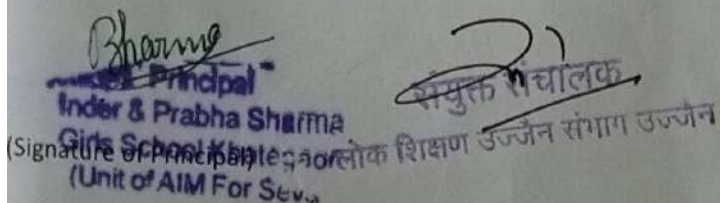 Principal
Inder & Prabha Sharma
Girls School
(Signature of Principal)
(Unit of AIM For Seva
संयुक्त संचालक
लोक शिक्षण उज्जैन संभाग उज्जैन